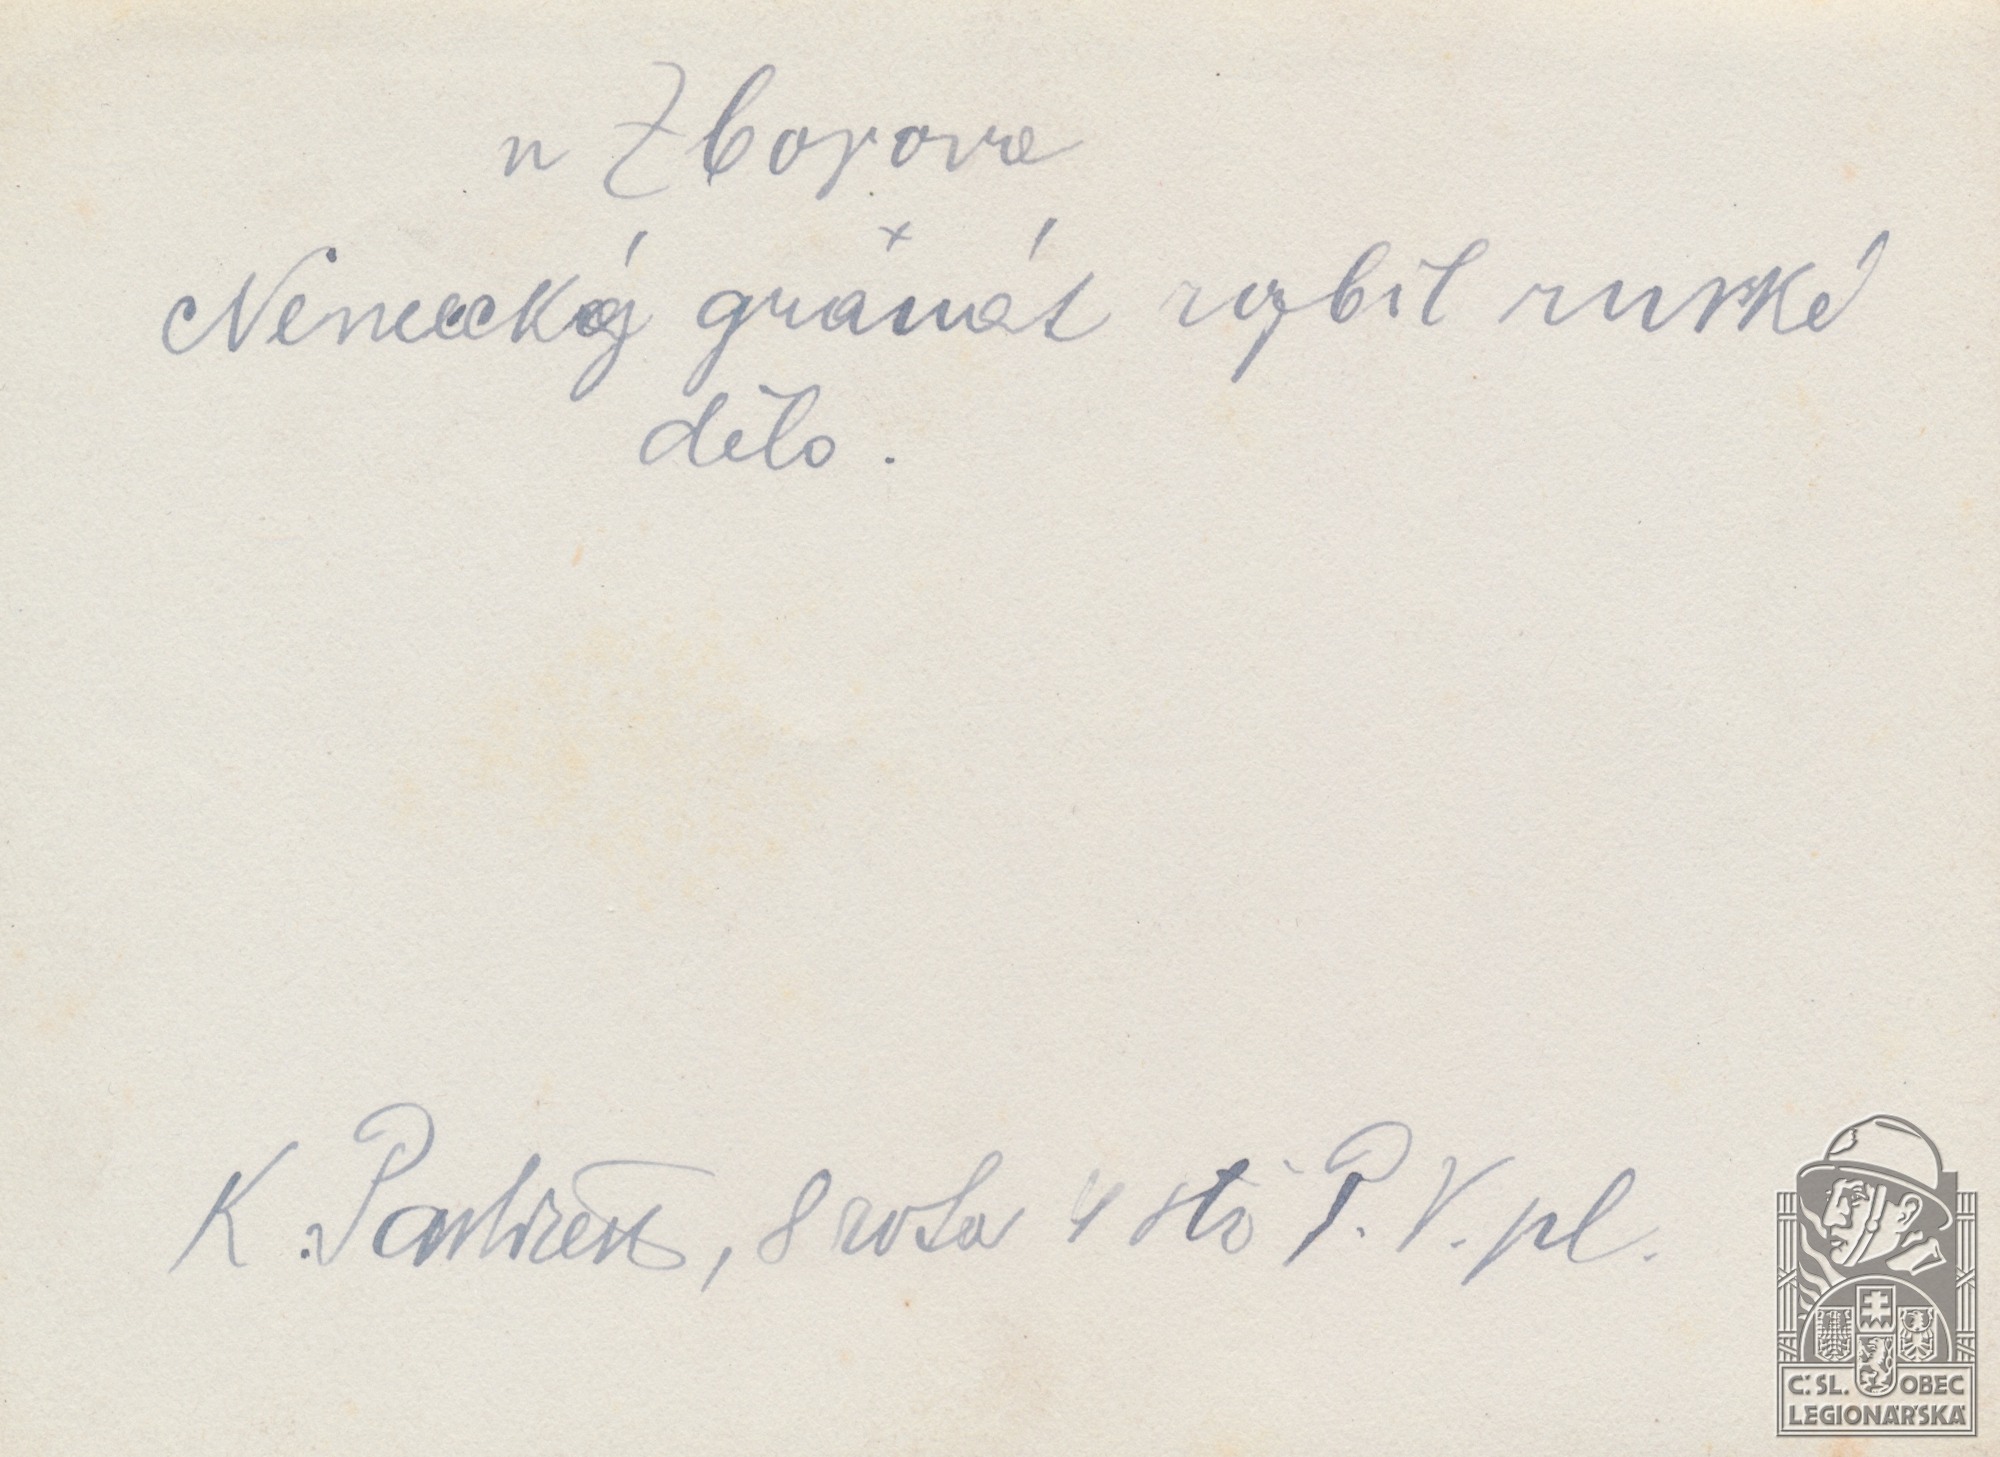 u Zborova
Německý granát rozbil ruské
dělo.
K. , 8 rota 4 stř P. V. pl.
Č: SL. OBEC
LEGIONÁŘSKÁ